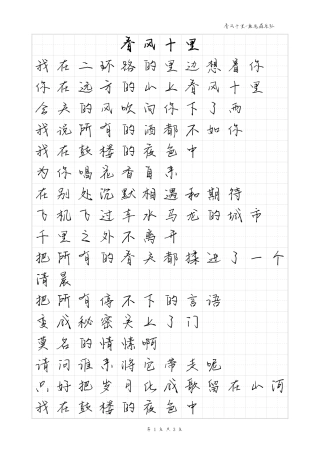 春风十里-鹿先森乐队
春风十里
我在二环路的里边想着你
你在远方的山上春风十里
今天的风吹向你下了雨
我说所有的酒都不如你
我在鼓楼的夜色中
为你唱花香自来
在别处沉默相遇和期待
飞机飞过车水马龙的城市
千里之外不离开
把所有的春天都揉进了一个
清晨
把所有停不下的言语
变成秘密关上了门
莫名的情愫啊
请问谁来将它带走呢
只好把岁月化成歌留在山河
我在鼓楼的夜色中